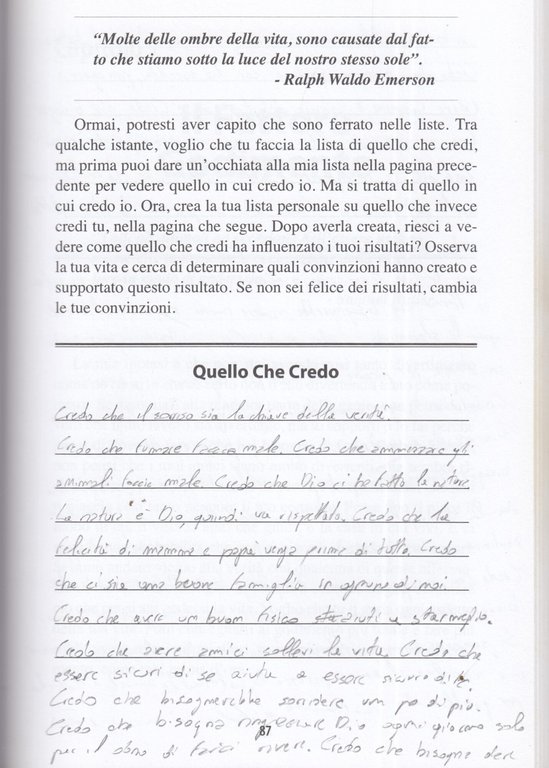 “Molte delle ombre della vita, sono causate dal fat-
to che stiamo sotto la luce del nostro stesso sole”.
- Ralph Waldo Emerson
Ormai, potresti aver capito che sono ferrato nelle liste. Tra
qualche istante, voglio che tu faccia la lista di quello che credi,
ma prima puoi dare un’occhiata alla mia lista nella pagina prece-
dente per vedere quello in cui credo io. Ma si tratta di quello in
cui credo io. Ora, crea la tua lista personale su quello che invece
credi tu, nella pagina che segue. Dopo averla creata, riesci a ve-
dere come quello che credi ha influenzato i tuoi risultati? Osserva
la tua vita e cerca di determinare quali convinzioni hanno creato e
supportato questo risultato. Se non sei felice dei risultati, cambia
le tue convinzioni.
Quello Che Credo
Credo che il sorriso sia la chiave della verità.
Credo che fumare faccia male. Credo che ammazzare gli
animali faccia male. Credo che Dio ci ha fatto la natura
La natura è Dio, quindi va rispettata. Credo che la
felicità di mamma e papà venga prima di tutto. Credo
che ci sia una buona famiglia in ognuno di noi
Credo che avere un buon fisico aiuti a star meglio.
Credo che avere amici sollevi la vita. Credo che
essere sicuri di se aiuta a essere sicuro di te.
Credo che bisognerebbe sorridere un po di più.
Credo che bisogna ringraziare Dio ogni giorno solo
87
per il dono di farci vivere. Credo che bisogna dare